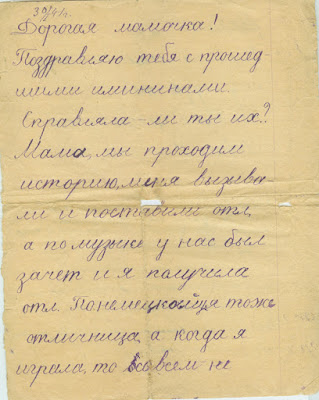 Дорогая мамочка!
Поздравляю тебя с прошед
шими имининами.
Справляла-ли ты их?
Мама, мы проходим
историю, меня вызива-
ли и поставили отл,
а по музыке у нас был
зачет и я получила
отл. Понемецкой я тоже
отличница, а когда я
играла, то совсем не